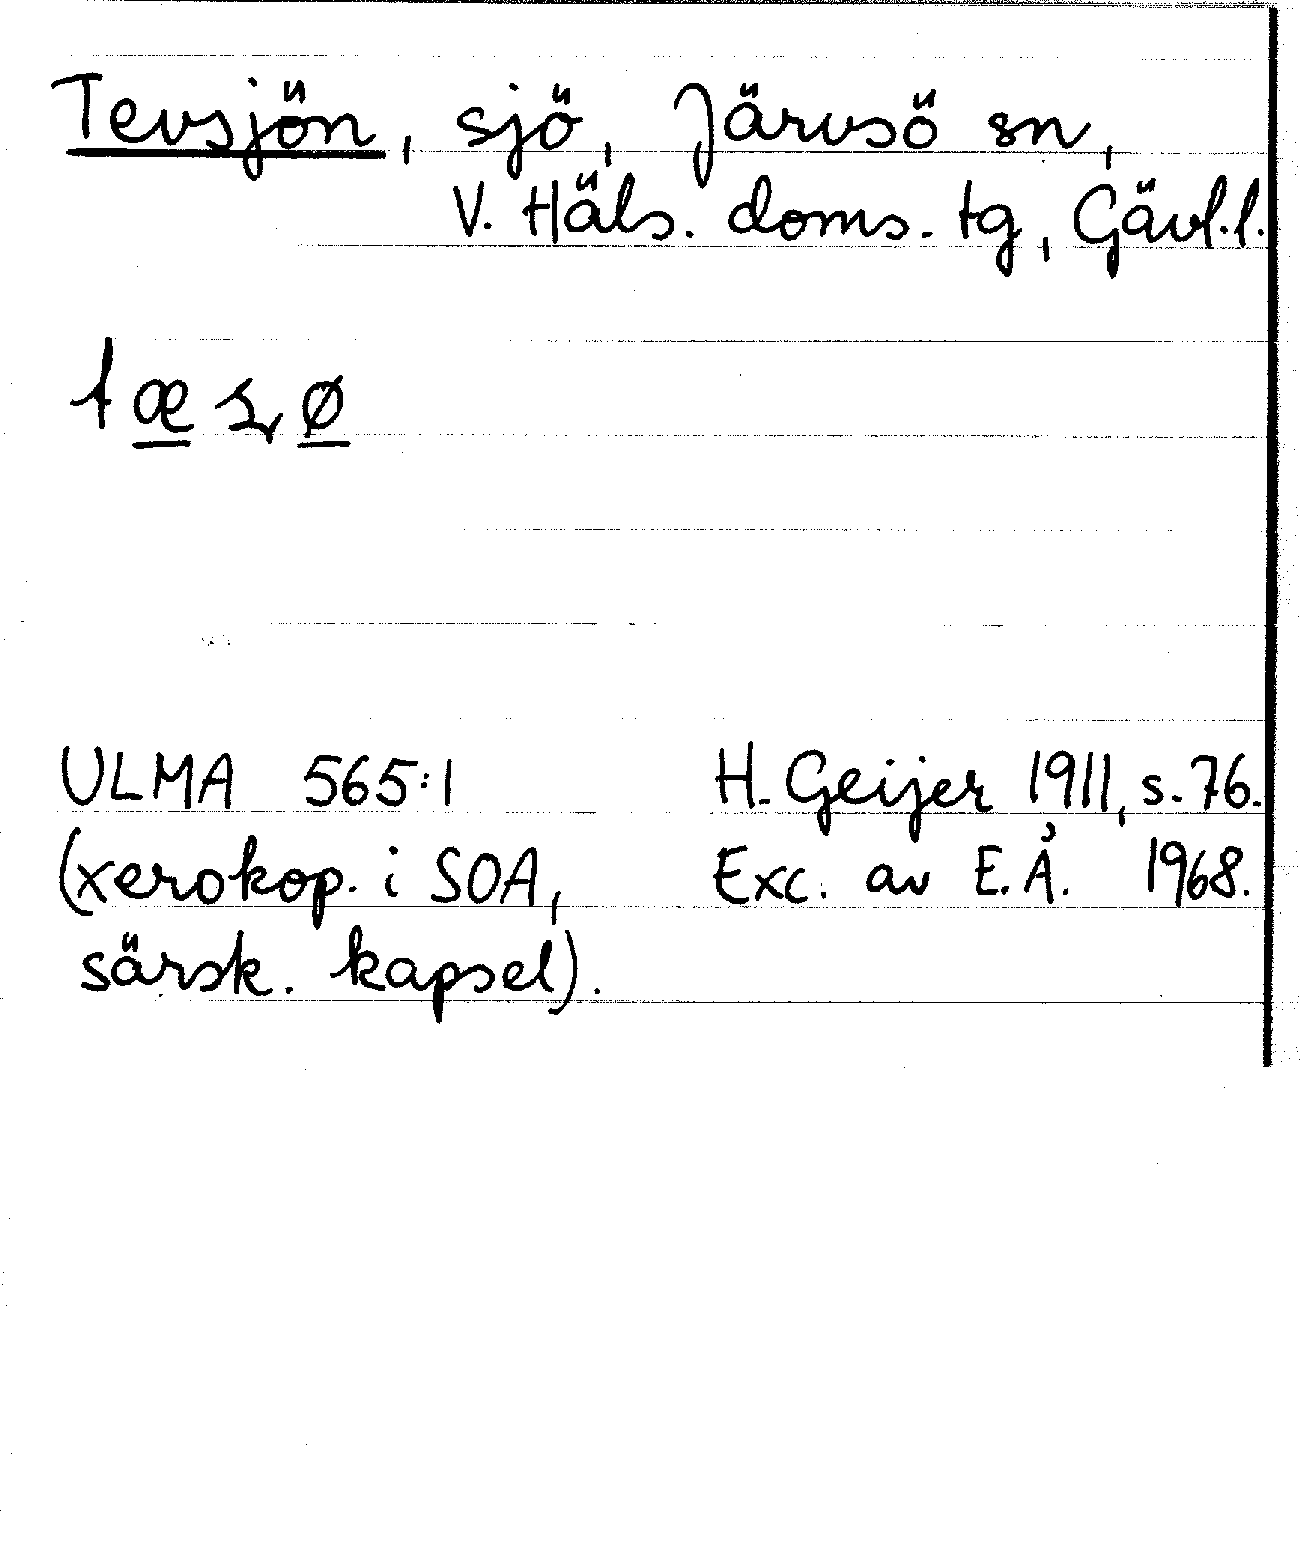 Tevsjön, sjö, Järvsö sn,
V. Häls. doms. tg, Gävl.l.
ULMA 565:1
(xerokop. i SOA,
särsk. kapsel).
H. Geijer 1911, s. 76.
Exc. av E. Å. 1968.